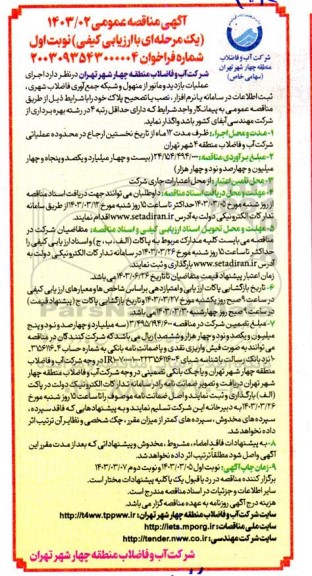 آگهی مناقصه عمومی ۱۴۰۳/۰۲
(یک مرحله‌ای با ارزیابی کیفی) نوبت اول
شماره فراخوان ۲۰۰۳۰۹۳۵۴۳۰۰۰۰۰۴
شرکت آب و فاضلاب
منطقه چهار شهر تهران
(سهامی خاص)
شرکت آب و فاضلاب منطقه چهار شهر تهران در نظر دارد اجرای
عملیات بازدید و مانور از منهول و شبکه جمع آوری فاضلاب شهری،
ثبت اطلاعات در سامانه یا نرم افزار، نصب یا تصحیح پلاک خود را با شرایط ذیل از طریق
مناقصه عمومی به پیمانکار واجد شرایط که دارای حداقل رتبه ۴ در رشته بهره برداری از
شرکت مهندسی آبفای کشور باشد واگذار نماید.
۱- مدت و محل اجرا: ظرف مدت ۱۲ ماه از تاریخ نخستین ارجاع در محدوده عملیاتی
آبفای منطقه ۴ شهر تهران
۲- مبلغ برآوردی مناقصه: ۲۴/۱۵۴/۴۹۴/۰۰۰ (بیست و چهار میلیارد و یکصد و پنجاه و چهار
میلیون و چهارصد و نود و چهار هزار)
۳- محل تامین اعتبار: از محل اعتبارات جاری شرکت
۴- مهلت و محل دریافت اسناد مناقصه: داوطلبان می توانند جهت دریافت اسناد مناقصه
از روز شنبه مورخ ۱۴۰۳/۰۳/۰۵ حداکثر تا ساعت ۱۵ روز شنبه مورخ ۱۴۰۳/۰۳/۱۲ از طریق سامانه
تدارکات الکترونیکی دولت به آدرس www.setadiran.ir اقدام نمایند.
۵- مهلت و محل تحویل اسناد ارزیابی کیفی و اسناد مناقصه: متقاضیان شرکت در
مناقصه می بایست کلیه مدارک مربوط به پاکات (الف، ب، ج) و اسناد ارزیابی کیفی را
حداکثر تا ساعت ۱۵ روز شنبه مورخ ۱۴۰۳/۰۳/۲۶ در سامانه تدارکات الکترونیکی دولت به
آدرس www.setadiran.ir بارگذاری و ثبت نمایند.
زمان اعتبار پیشنهاد قیمت متقاضیان تا تاریخ ۱۴۰۳/۰۶/۲۶ می باشد.
۶- تاریخ بازگشایی پاکات ارزیابی و امتیازدهی بر اساس شاخص ها و معیارهای ارزیابی کیفی
در ساعت ۹ صبح روز یکشنبه مورخ ۱۴۰۳/۰۳/۲۷ و تاریخ بازگشایی پاکات ج (پیشنهاد قیمت)
در ساعت ۹ صبح روز چهارشنبه ۱۴۰۳/۰۳/۳۰ می باشد.
۷- مبلغ تضمین شرکت در مناقصه
می توانند به صورت فیش واریزی نقدی و یا ضمانت نامه بانکی به شماره حساب
منطقه چهار شهر تهران و یا چک بانکی تضمینی در وجه شرکت آب و فاضلاب منطقه چهار
شهر تهران دریافت و تصویر ضمانت نامه را در سامانه تدارکات الکترونیک دولت در پاکت
(الف) بارگذاری و ثبت نمایند و اصل ضمانت نامه موصوف را تا ساعت ۱۵ روز شنبه مورخ
۱۴۰۳/۰۳/۲۶ به دبیرخانه این شرکت تسلیم نمایند و به پیشنهادهایی که فاقد سپرده،
سپرده های مخدوش، سپرده های کمتر از میزان مقرر، چک شخصی و نظایر آن ترتیب اثر
داده نخواهد شد.
۸- به پیشنهادات فاقد امضاء، مشروط، مخدوش و پیشنهاداتی که بعد از مدت مقرر این
آگهی واصل شود مطلقا ترتیب اثر داده نخواهد شد.
۹- زمان چاپ آگهی: نوبت اول ۱۴۰۳/۰۳/۰۵ و نوبت دوم ۱۴۰۳/۰۳/۰۷
برگزار کننده مناقصه در رد یا قبول یک یا کلیه پیشنهادات مختار است.
سایر اطلاعات و جزئیات در اسناد مناقصه مندرج است.
هزینه درج آگهی روزنامه به عهده مناقصه گزار می باشد.
سایت شرکت آب و فاضلاب منطقه چهار شهر تهران: http://t4ww.tppww.ir
سایت ملی مناقصات: http://iets.mporg.ir
سایت شرکت مهندسی: http://tender.nww.co.ir
شرکت آب و فاضلاب منطقه چهار شهر تهران